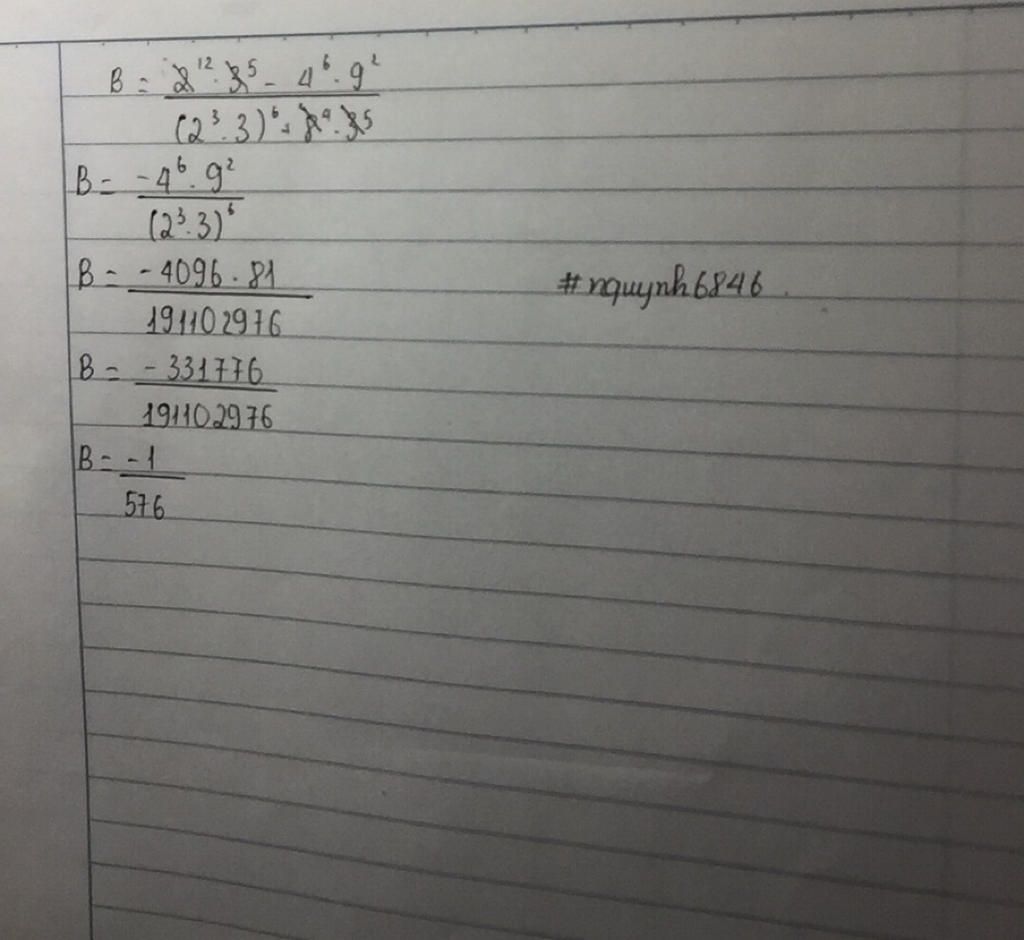 B = 2^12 · 3^5 - 4^6 · 9^2
(2^3 · 3)^6 + 8^4 · 3^5
B = -4^6 · 9^2
(2^3 · 3)^6
B = -4096 · 81
191102976
#nquynh6846
B = -331776
191102976
B = -1
576